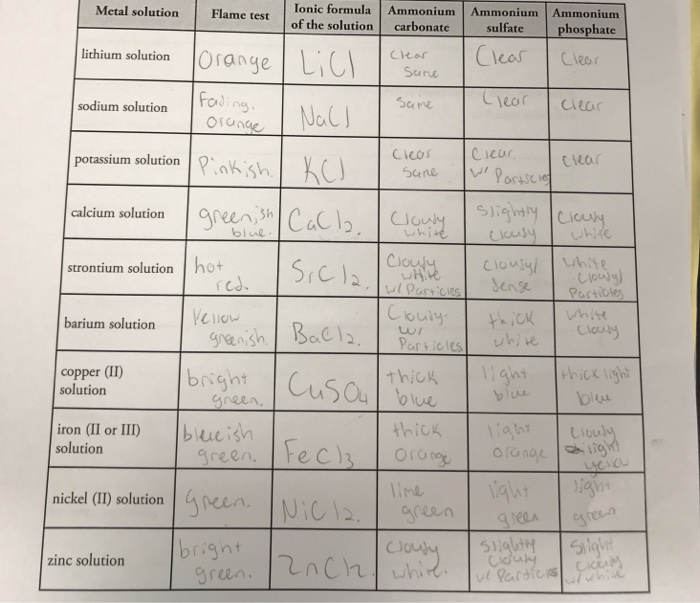 Metal solution Flame test Ionic formula of the solution Ammonium carbonate Ammonium sulfate Ammonium phosphate
lithium solution Orange LiCl Clear Same Clear Clear
sodium solution fading. orange NaCl Same Clear Clear
potassium solution Pinkish. KCl Clear Same Clear w/ Particles Clear
calcium solution greenish blue. CaCl2. Cloudy white Slightly cloudy Cloudy white
strontium solution hot red. SrCl2. Cloudy white w/ Particles Cloudy/ dense white Cloudy/ Particles
barium solution Yellow greenish. BaCl2. Cloudy w/ Particles thick white white Cloudy
copper (II) solution bright green. CuSO4 thick blue light blue thick light blue
iron (II or III) solution blueish green. FeCl3 thick orange light orange Cloudy light
nickel (II) solution green. NiCl2. lime green light green light green
zinc solution bright green. ZnCl2. cloudy white. Slightly Cloudy w/ Particles Slight w/ white